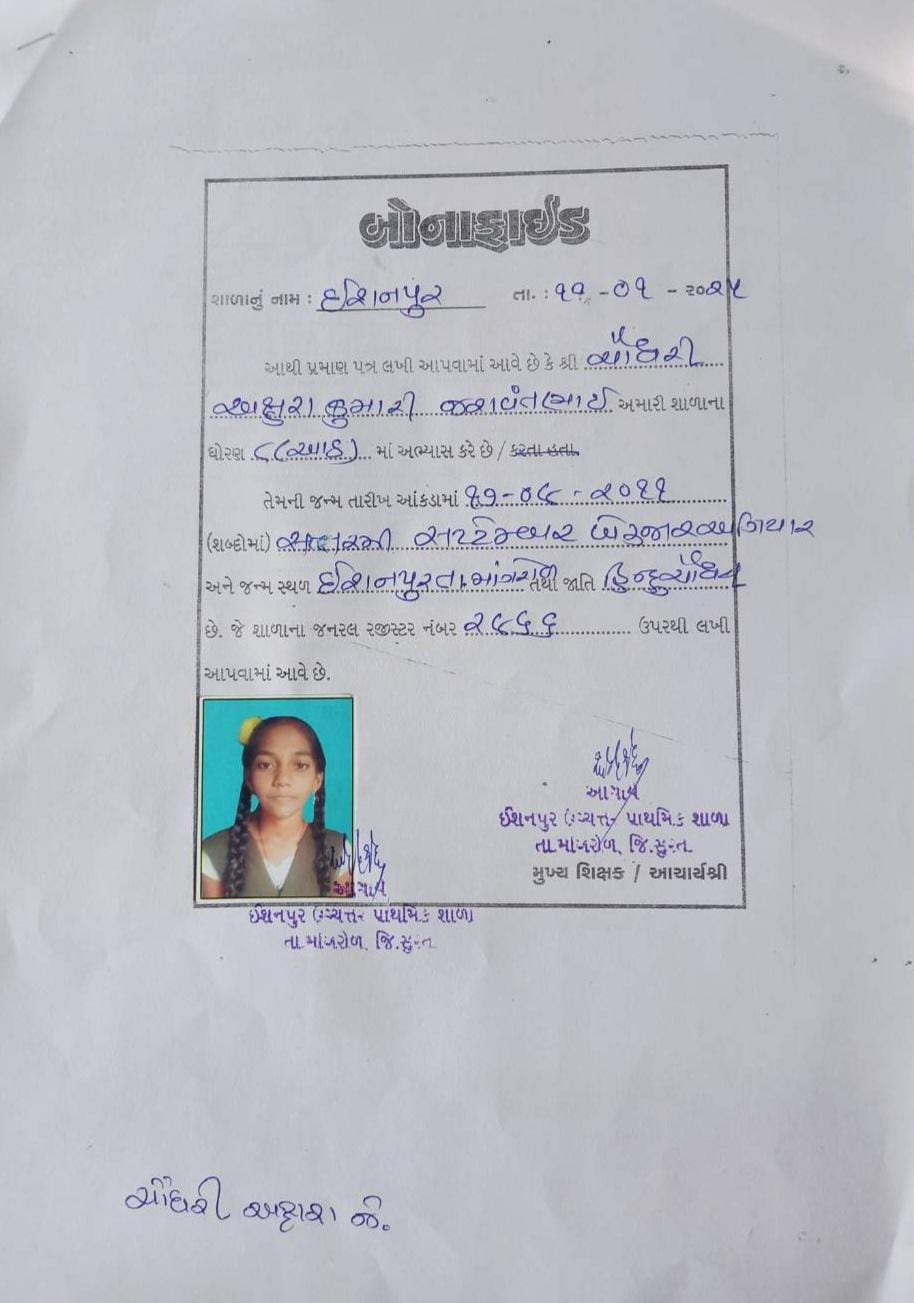 બોનાફાઈડ
શાળાનું નામ : ઈશનપુર તા. : ૧૧ - ૦૧ - ૨૦૨૫
આથી પ્રમાણ પત્ર લખી આપવામાં આવે છે કે શ્રી ચૌધરી
કુમારી જશવંતભાઈ અમારી શાળાના
ધોરણ ૮ (આઠ) માં અભ્યાસ કરે છે / કરતા હતા.
તેમની જન્મ તારીખ આંકડામાં ૧૭-૦૯-૨૦૧૧
(શબ્દોમાં) સત્તરમી સપ્ટેમ્બર બે હજાર અગિયાર
અને જન્મ સ્થળ ઈશનપુર તા. માંગરોળ તથા જાતિ હિન્દુ ચૌધરી
છે. જે શાળાના જનરલ રજીસ્ટર નંબર ૨૯૬૬ ઉપરથી લખી
આપવામાં આવે છે.
આચાર્ય
ઈશનપુર ઉચ્ચત્તર પ્રાથમિક શાળા
તા.માંગરોળ, જિ.સુરત
મુખ્ય શિક્ષક / આચાર્યશ્રી
આચાર્ય
ઈશનપુર ઉચ્ચત્તર પ્રાથમિક શાળા
તા.માંગરોળ, જિ.સુરત
ચૌધરી જે.